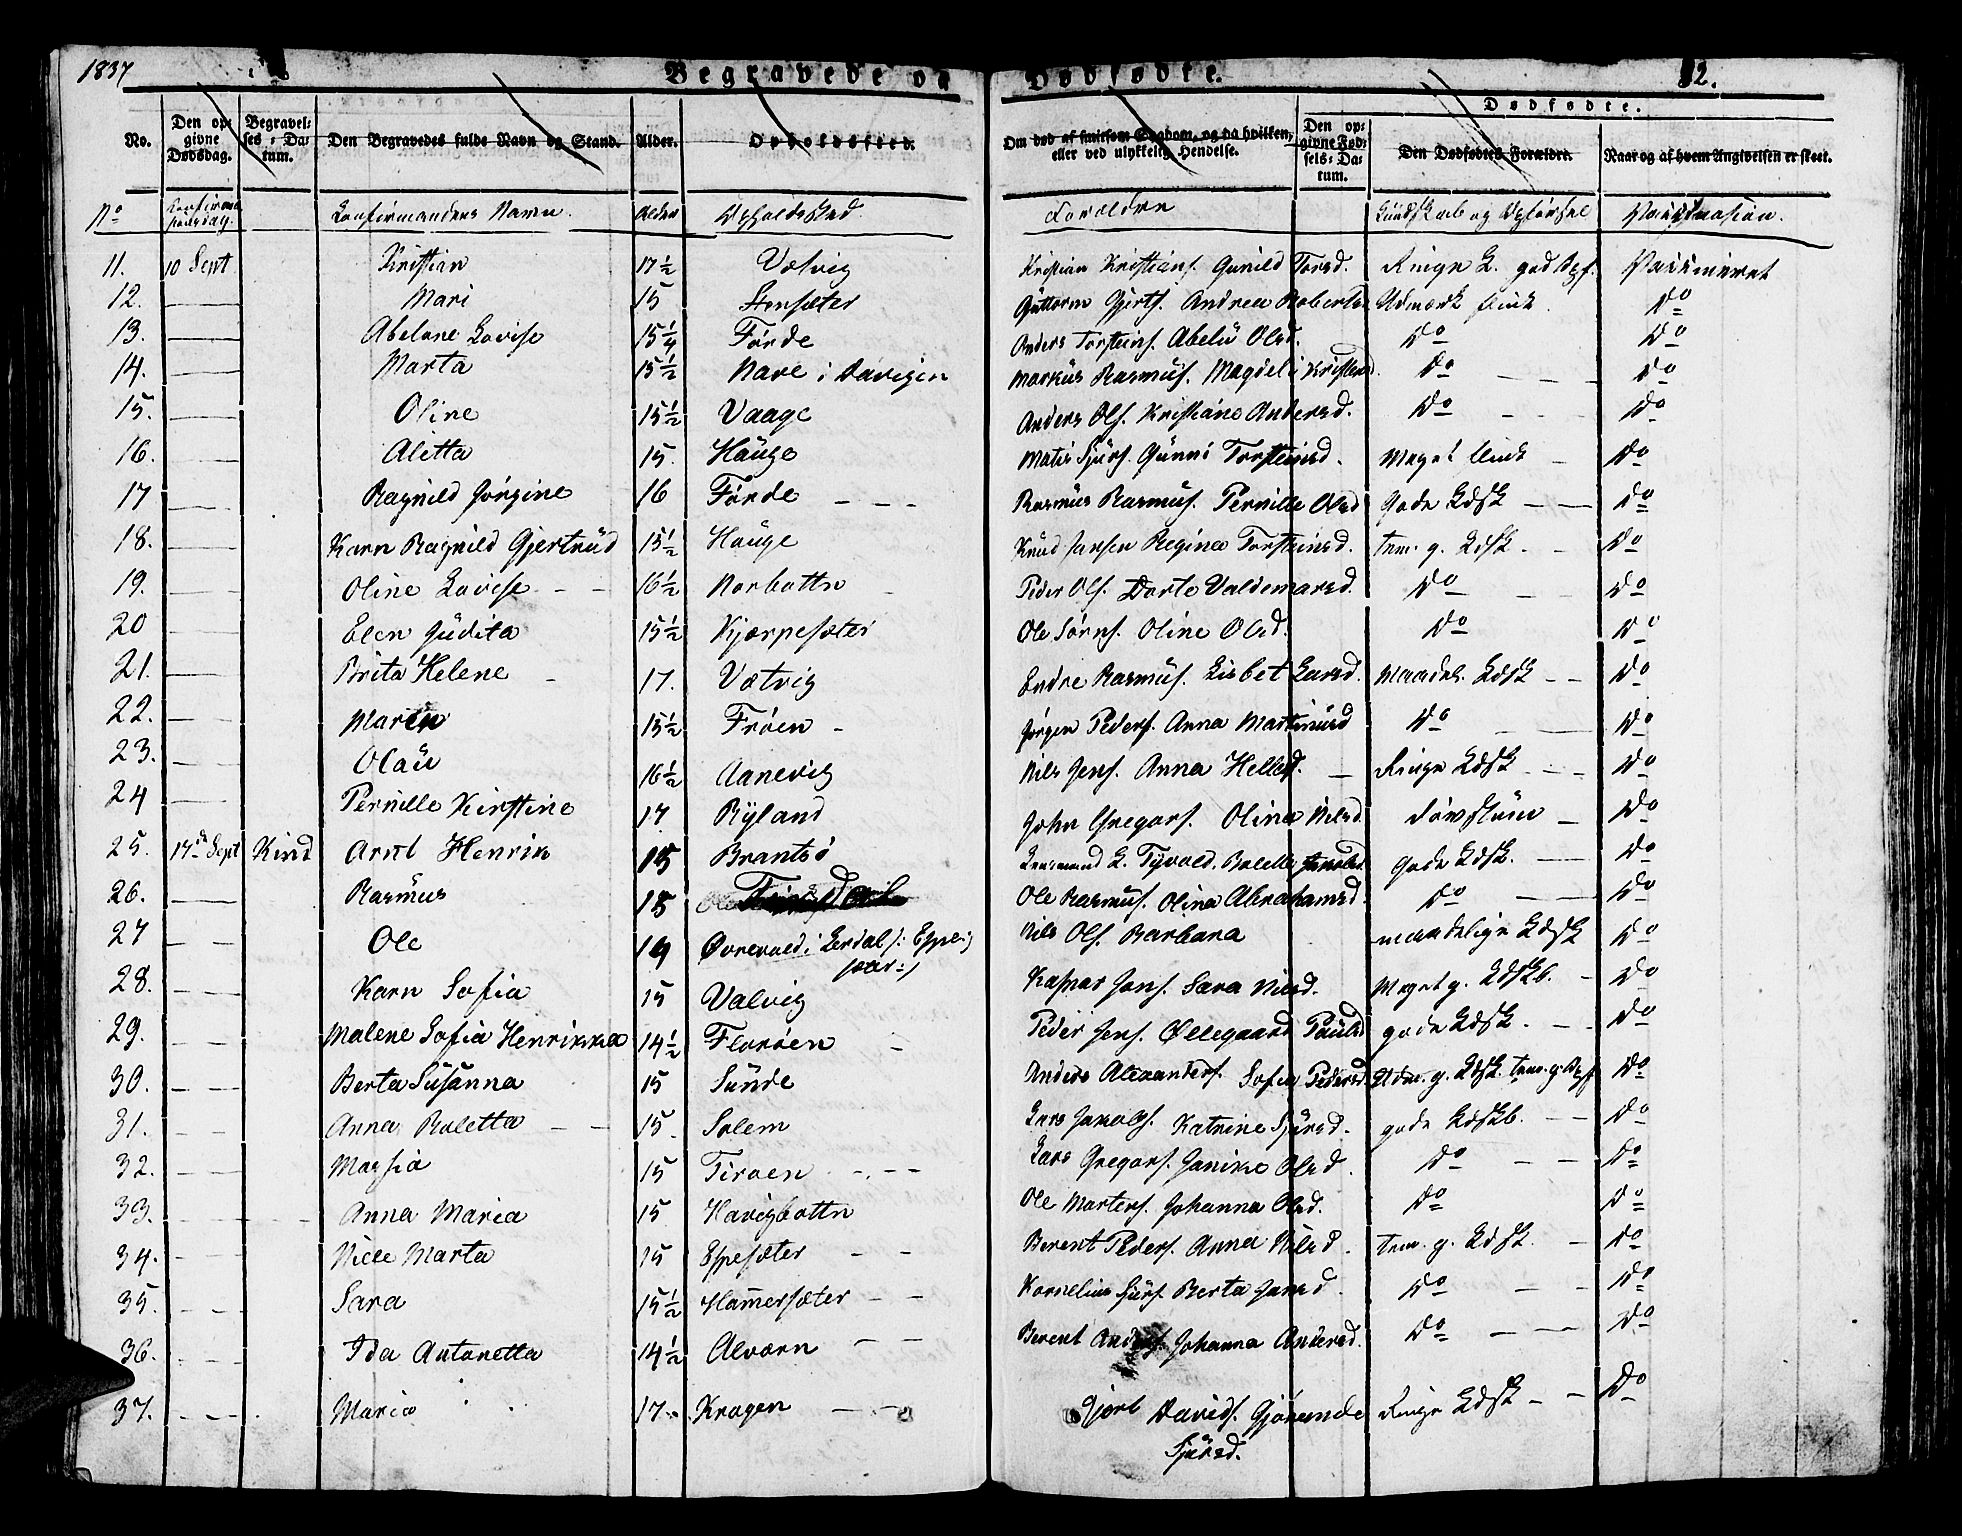 1837
Begravede og Dødfødte.
12.
No. Den opgivne Dødsdag. Begravelses-Datum. Den Begravedes fulde Navn og Stand. Alder. Opholdssted. Om død af smitsom Sygdom, og da hvilken, eller ved ulykkelig Hendelse. Den opgivne Fødsels-Datum. Dødfødte. Den Dødfødtes Forældre. Naar og af hvem Angivelsen er skeet.
No Confirmationsdag. Konfirmandens Navn. Alder Opholdssted. Forældre Kundskab og Opførsel Vaccination.
11. 10 Sept Kristian 17½ Vætvig Kristian Kristians. Gunild Torsd. Ringe K. god Opf. Vaccineret
12. Mari 15 Stensæter Guttorm Gjerts. Andrea Roberts Udmærk flink. Do
13. Abelone Lovise 15¼ Førde Anders Torsteins. Abelü Olsd. Do Do
14. Marta 15½ Nave i Davigen Markus Rasmus. Magdeli Kristensd. Do Do
15. Oline 15½ Vaage Anders Ols. Kristiane Andersd. Do Do
16. Aletta 15. Hauge Matis Sjurs. Gunni Torsteinsd. Meget flink Do
17 Ragnild Jørgine 16 Førde Rasmus Rasmus. Pernille Olsd gode Kdsk Do
18. Karn Ragnild Gjertrud 15½ Hauge Knud Jansen Regina Torsteinsd. tem. g. Kdsk. Do
19. Oline Lovise 16½ Norbottn Peder Ols. Dorte Valdemarsd. Do Do
20 Elen Judita 15½ Kjærpesæter Ole Sørns. Oline Olsd. Do Do
21. Brita Helene 17. Vætvig Endre Rasmus. Lisbet Larsd. Maadel. Kdsk Do
22. Maren 15½ Frøen Jørgen Peders. Anna Martinusd Do Do
23. Olau 16½ Aanevig Nils Jens. Anna Hellesd. Ringe Kdsk Do
24 Pernille Kirstine 17 Ryland John Gregors. Olina Nilsd. døvstum Do
25. 17de Sept Kind Arnt Henrik 15 Brantsø Tyvold. Bolette gode Kdsk. Do
26. Rasmus 15 Ole Rasmus. Olina Abrahamsd. Do Do
27 Ole 19 Øvrevold i Lerdal /: Espesæter :/ Nils Ols. Barbara maadelige Kdsk Do
28. Karn Sofia 15 Valvig Kaspar Jans. Sara Nilsd. Meget g. Kdskb. Do
29. Malene Sofia Henrikka 14½ Florøen Peder Jens. Øllegaard Paulsd gode Kdsk. Do
30. Berta Susanna 15 Sunde Anders Alexanders. Sofia Pedersd. Udm. g. Kdsk. tem. g. Opf Do
31. Anna Boletta 15. Solem Lars Jakobs. Katrine Sjursd. gode Kdskb. Do
32. Massia 15 Tiroen Lars Gregors. Janike Olsd. Do Do
33. Anna Maria 15 Havigbottn Ole Mortens. Johanna Olsd. Do Do
34. Nille Marta 15 Espesæter Berent Peders. Anna Nilsd. tem. g. Kdsk. Do
35. Sara 15½ Hammersæter Kornelius Sjurs. Berta Jansd. Do Do
36. Ida Antonetta 14½ Alvorn Berent Anders. Johanna Andersd. Do Do
37. Maria 17 Kragen Gjert Davids. Gjørende Sjursd. Ringe Kdsk Do